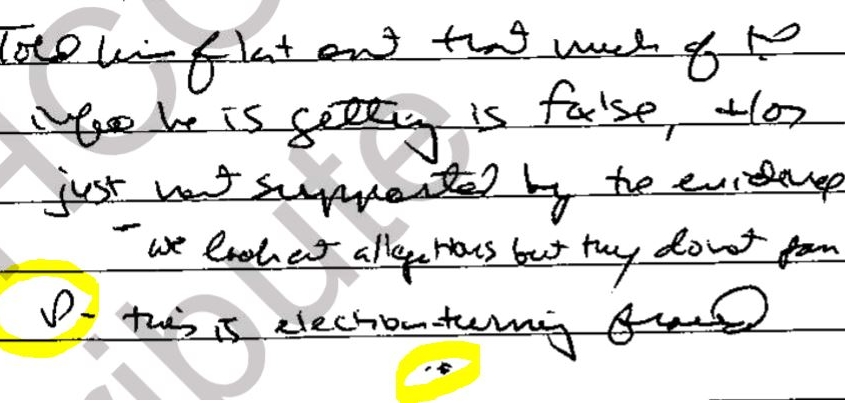 Told him flat out that much of the
info he is getting is false, +/or
just not supported by the evidence
- we look at allegations but they don't pan
P - this is election-turning fraud